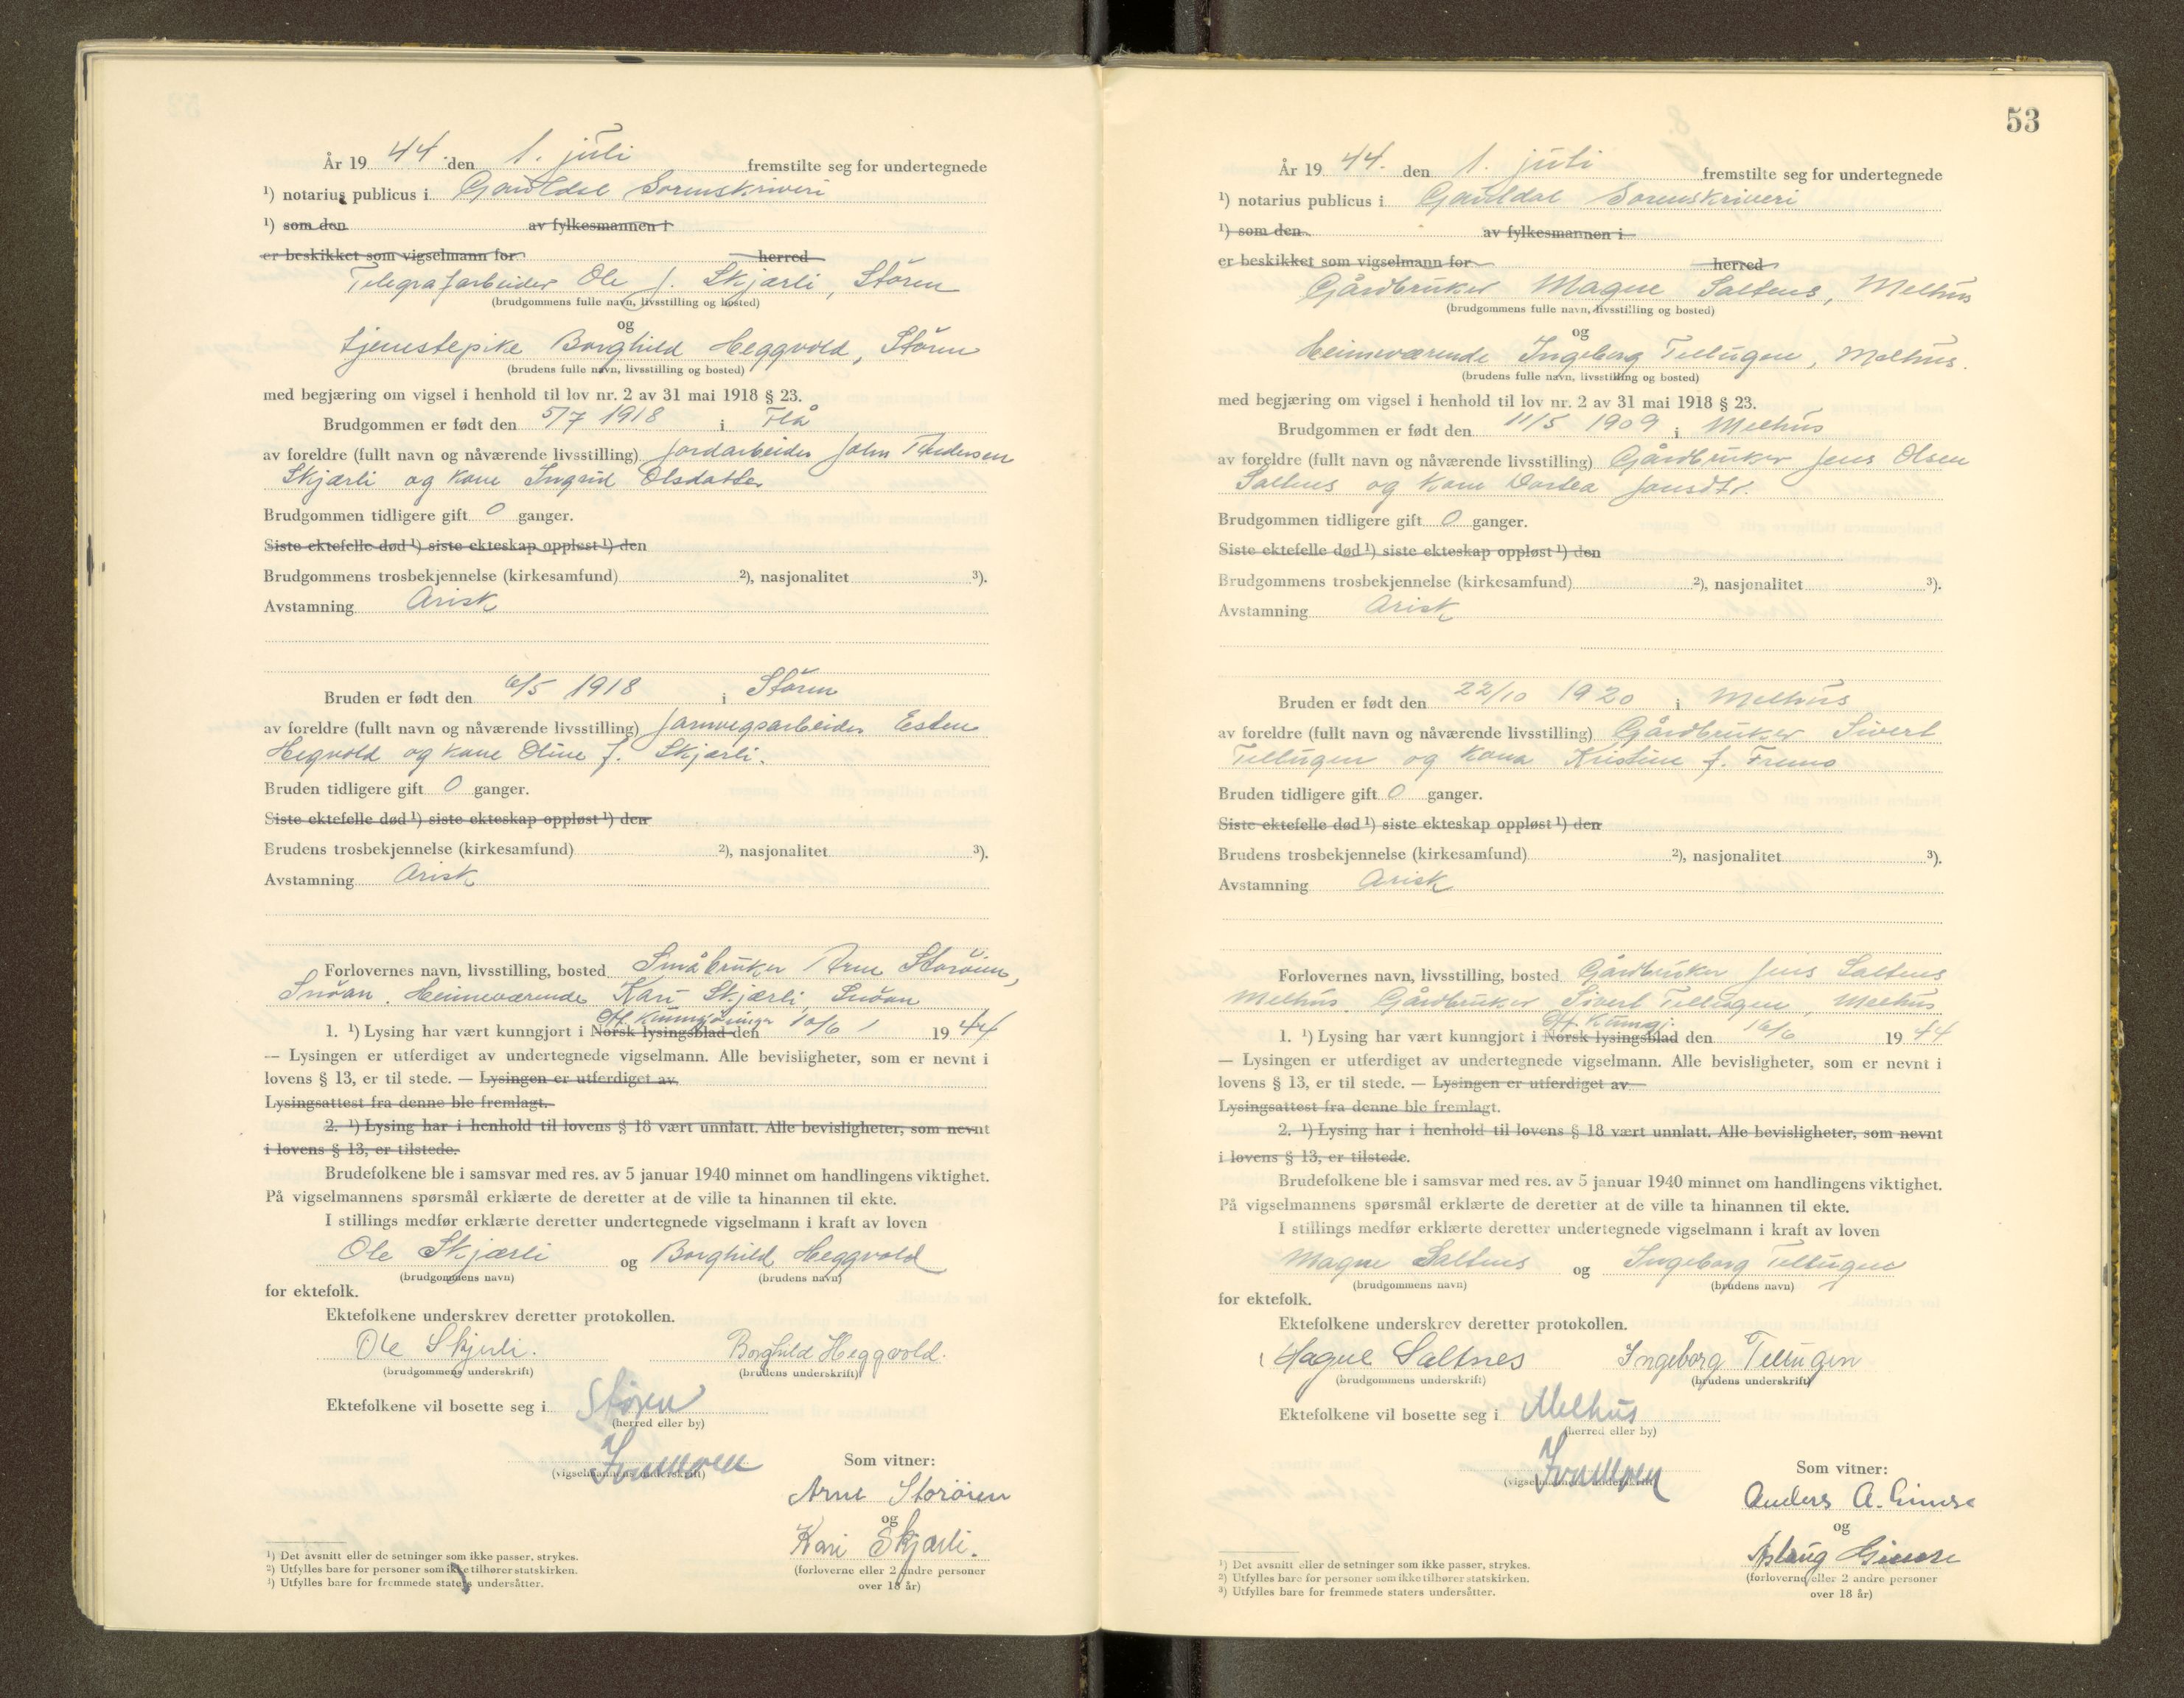 År 19 44 den 1. juli fremstilte seg for undertegnede
¹) notarius publicus i Gauldal Sorenskriveri
¹) som den av fylkesmannen i
er beskikket som vigselmann for herred
Telegrafarbeider Ole J. Skjærli, Støren
(brudgommens fulle navn, livsstilling og bosted)
og
tjenestepike Borghild Heggvold, Støren
(brudens fulle navn, livsstilling og bosted)
med begjæring om vigsel i henhold til lov nr. 2 av 31 mai 1918 § 23.
Brudgommen er født den 5/7 1918 i Flå
av foreldre (fullt navn og nåværende livsstilling) Jordarbeider John
Skjærli og kone Ingrid Olsdatter
Brudgommen tidligere gift 0 ganger.
Siste ektefelle død ¹) siste ekteskap oppløst ¹) den
Brudgommens trosbekjennelse (kirkesamfund) ²), nasjonalitet ³).
Avstamning Arisk
Bruden er født den 6/5 1918 i Støren
av foreldre (fullt navn og nåværende livsstilling) Jernvegsarbeider Esten
Hegvold og kone Oline f. Skjærli.
Bruden tidligere gift 0 ganger.
Siste ektefelle død ¹) siste ekteskap oppløst ¹) den
Brudens trosbekjennelse (kirkesamfund) ²), nasjonalitet ³).
Avstamning Arisk
Forlovernes navn, livsstilling, bosted Småbruker Arne Storøien,
Snøan. Heimeværende Kari Skjærli, Snøan
Off. kunngjøringer
1. ¹) Lysing har vært kunngjort i Norsk lysingsblad den 10/6 1944
— Lysingen er utferdiget av undertegnede vigselmann. Alle bevisligheter, som er nevnt i
lovens § 13, er til stede. — Lysingen er utferdiget av
Lysingsattest fra denne ble fremlagt.
2. ¹) Lysing har i henhold til lovens § 18 vært unnlatt. Alle bevisligheter, som nevnt
i lovens § 13, er tilstede.
Brudefolkene ble i samsvar med res. av 5 januar 1940 minnet om handlingens viktighet.
På vigselmannens spørsmål erklærte de deretter at de ville ta hinannen til ekte.
I stillings medfør erklærte deretter undertegnede vigselmann i kraft av loven
Ole Skjærli og Borghild Heggvold
(brudgommens navn) (brudens navn)
for ektefolk.
Ektefolkene underskrev deretter protokollen.
Ole Skjærli. Borghild Heggvold.
(brudgommens underskrift) (brudens underskrift)
Ektefolkene vil bosette seg i Støren
(herred eller by)
(vigselmannens underskrift)
Som vitner:
Arne Storøien
og
Kari Skjærli.
(forloverne eller 2 andre personer
over 18 år)
¹) Det avsnitt eller de setninger som ikke passer, strykes.
²) Utfylles bare for personer som ikke tilhører statskirken.
³) Utfylles bare for fremmede staters undersåtter.
53
År 19 44. den 1. juli fremstilte seg for undertegnede
¹) notarius publicus i Gauldal Sorenskriveri
¹) som den av fylkesmannen i
er beskikket som vigselmann for herred
Gårdbruker Magne Saltnes, Melhus
(brudgommens fulle navn, livsstilling og bosted)
og
Heimeværende Ingeborg Tellugen, Melhus.
(brudens fulle navn, livsstilling og bosted)
med begjæring om vigsel i henhold til lov nr. 2 av 31 mai 1918 § 23.
Brudgommen er født den 11/5 1909 i Melhus
av foreldre (fullt navn og nåværende livsstilling) Gårdbruker Jens Olsen
Saltnes og kone Dortea Jonsdtr.
Brudgommen tidligere gift 0 ganger.
Siste ektefelle død ¹) siste ekteskap oppløst ¹) den
Brudgommens trosbekjennelse (kirkesamfund) ²), nasjonalitet ³).
Avstamning Arisk
Bruden er født den 22/10 1920 i Melhus
av foreldre (fullt navn og nåværende livsstilling) Gårdbruker Sivert
Tellugen og kona Kristine f. Fremo
Bruden tidligere gift 0 ganger.
Siste ektefelle død ¹) siste ekteskap oppløst ¹) den
Brudens trosbekjennelse (kirkesamfund) ²), nasjonalitet ³).
Avstamning Arisk
Forlovernes navn, livsstilling, bosted Gårdbruker Jens Saltnes
Melhus. Gårdbruker Sivert Tellugen, Melhus
Off. Kunngj.
1. ¹) Lysing har vært kunngjort i Norsk lysingsblad den 16/6 1944
— Lysingen er utferdiget av undertegnede vigselmann. Alle bevisligheter, som er nevnt i
lovens § 13, er til stede. — Lysingen er utferdiget av
Lysingsattest fra denne ble fremlagt.
2. ¹) Lysing har i henhold til lovens § 18 vært unnlatt. Alle bevisligheter, som nevnt
i lovens § 13, er tilstede.
Brudefolkene ble i samsvar med res. av 5 januar 1940 minnet om handlingens viktighet.
På vigselmannens spørsmål erklærte de deretter at de ville ta hinannen til ekte.
I stillings medfør erklærte deretter undertegnede vigselmann i kraft av loven
Magne Saltnes og Ingeborg Tellugen
(brudgommens navn) (brudens navn)
for ektefolk.
Ektefolkene underskrev deretter protokollen.
Magne Saltnes Ingeborg Tellugen
(brudgommens underskrift) (brudens underskrift)
Ektefolkene vil bosette seg i Melhus
(herred eller by)
(vigselmannens underskrift)
Som vitner:
Anders A. Gimse
og
Aslaug Gimse
(forloverne eller 2 andre personer
over 18 år)
¹) Det avsnitt eller de setninger som ikke passer, strykes.
²) Utfylles bare for personer som ikke tilhører statskirken.
³) Utfylles bare for fremmede staters undersåtter.